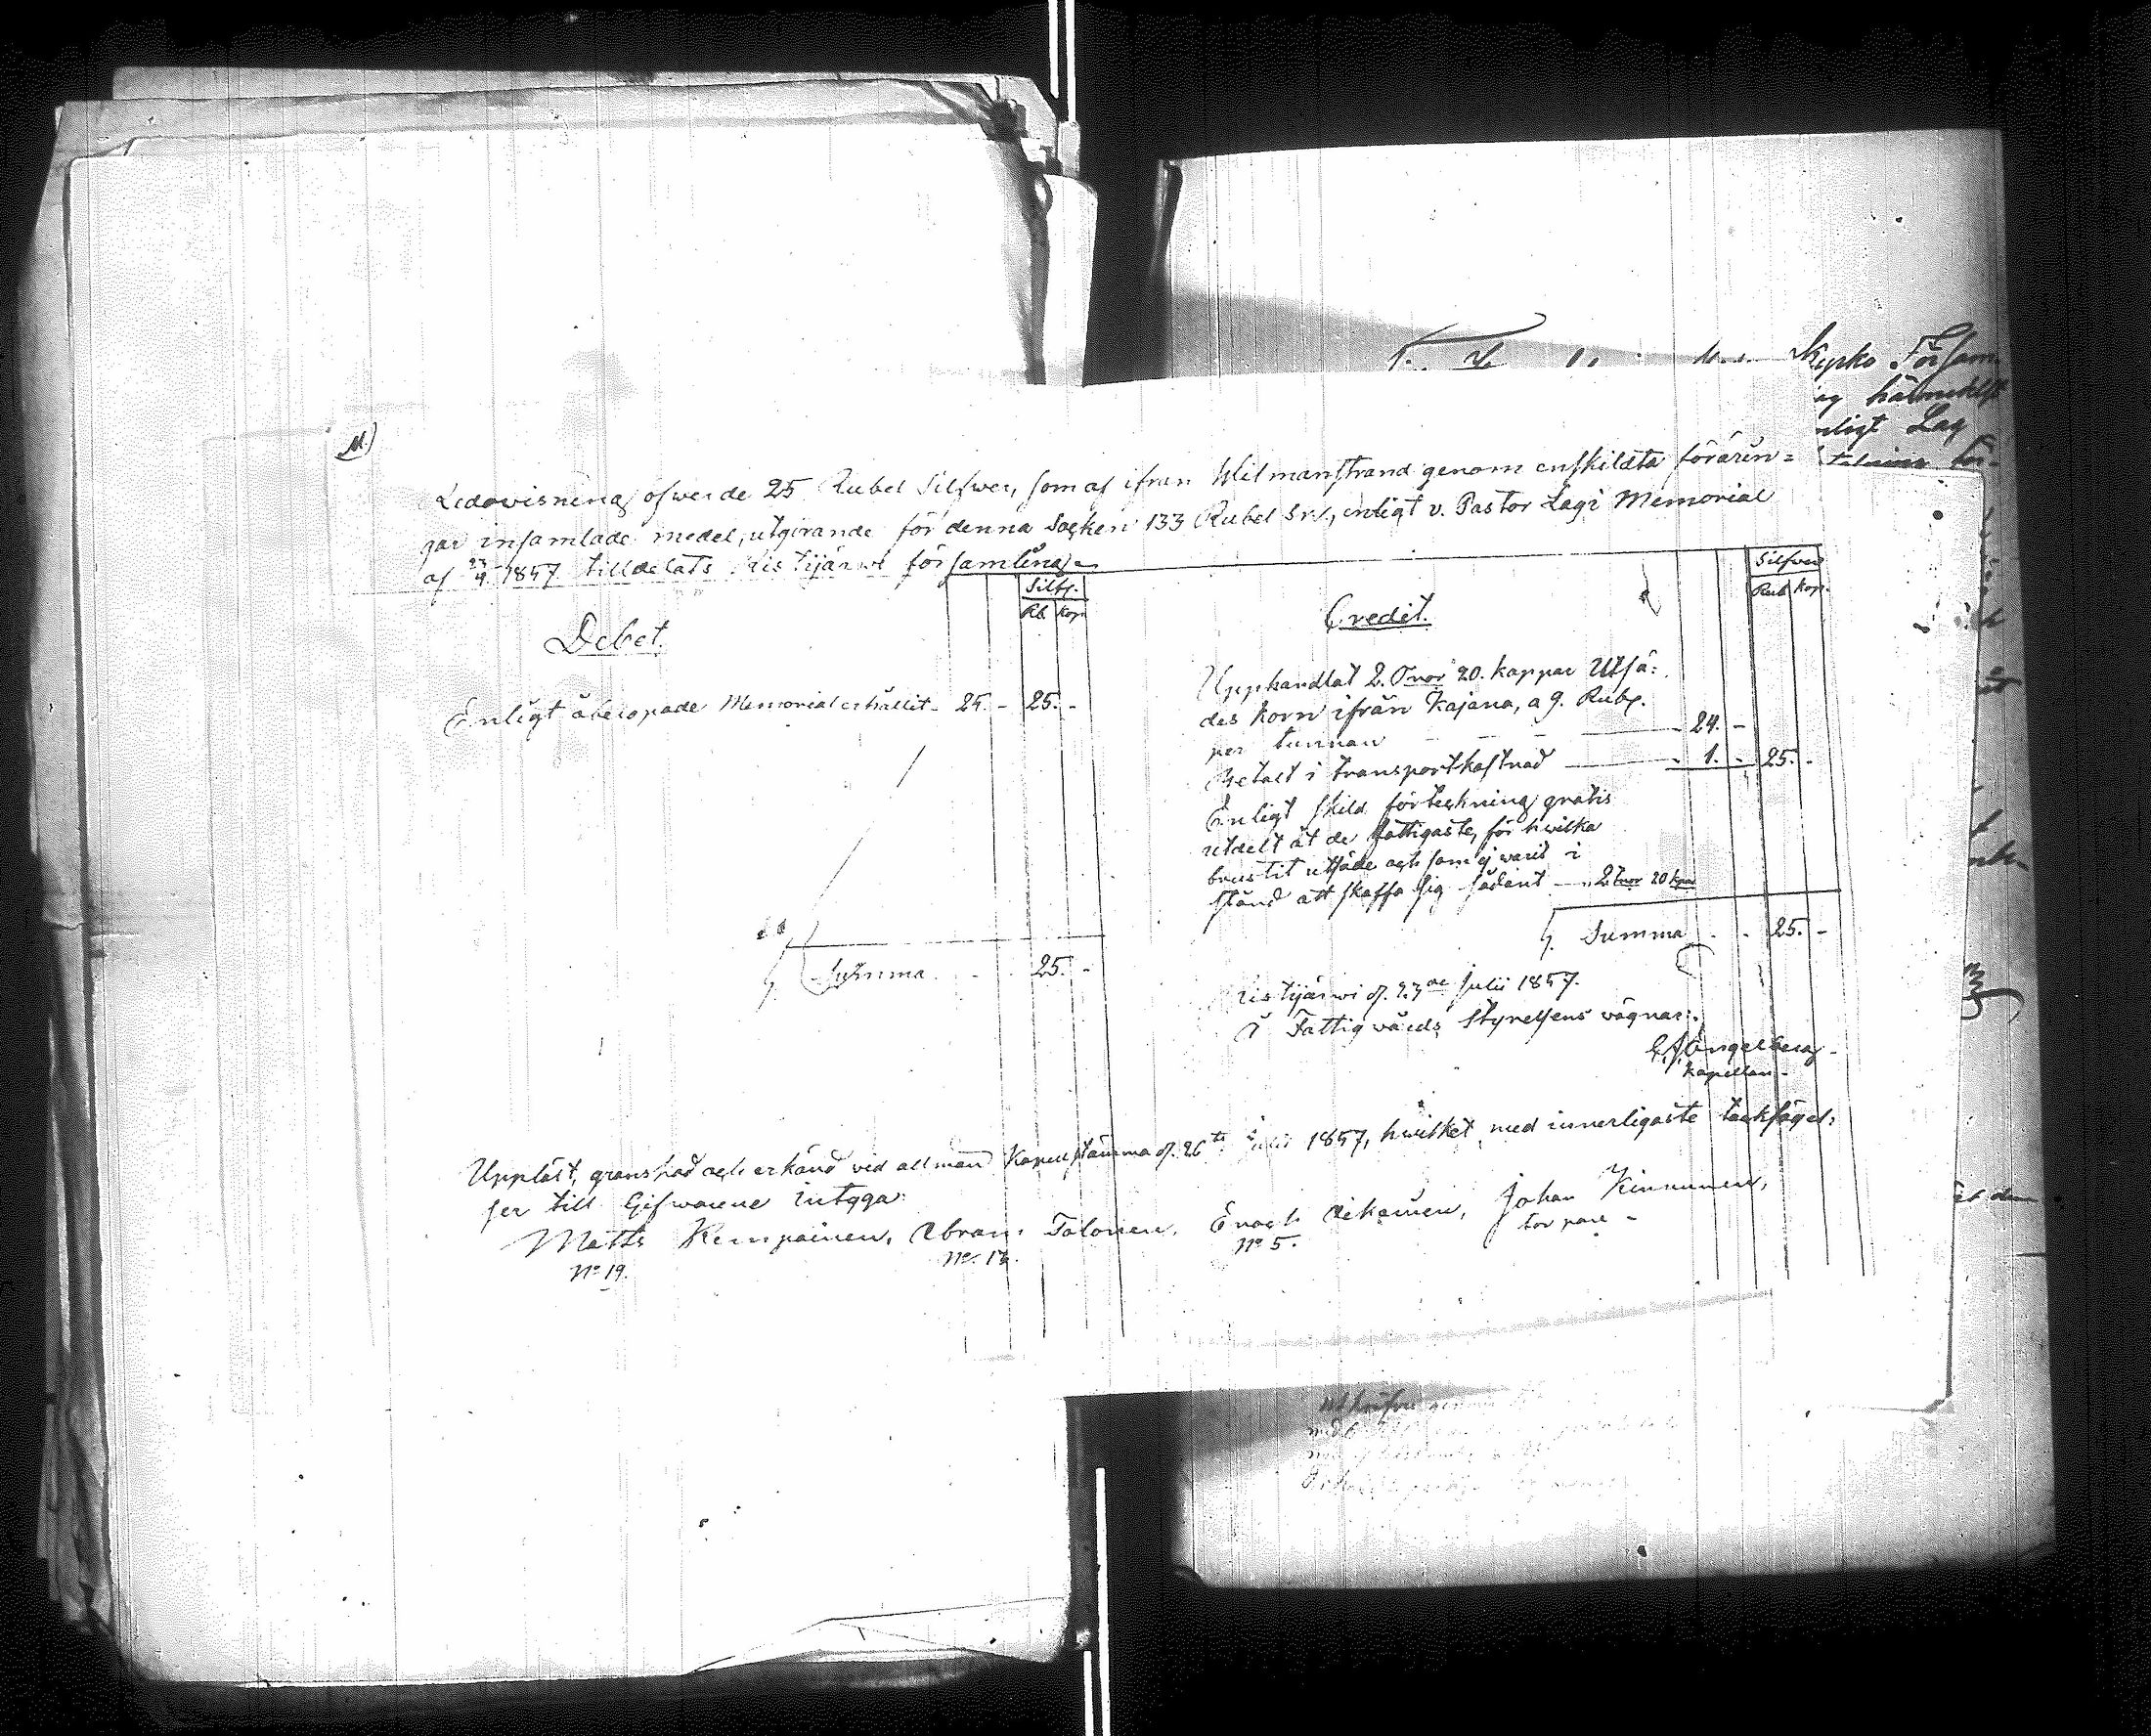 M.)
Redovisning öfver de 25 Rubel Silfwer, som af ifrån Wilmanstrand genom enskildta förärin=
gar insamlade medel, utgörande för denna Socken 133 Rubel Srr., enligt v. Pastor Lagi Memorial
af 23/4 1857 tilldelats Ristijärwi församling.
Debet.
Silfv.
Rb. Kop.
Enligt åberopade Memorial erhållit - 25. - 25. -
Summa . . 25. -
Credit.
Silfver
Rub. Kop.
Upphandlat 2. Tnor 20. kappar Utsä=
des korn ifrån Kajana, a 9. Rub.
per tunnan - 24. -
Betalt i transportkostnad - 1. - 25. -
Enligt skild förteckning gratis
utdelt åt de fattigaste, för hvilka
brustit utsäde och som ej varit i
stånd att skaffa sig sådant - 2 Tnor 20 kpar
S. Summa . . 25. -
Ristijärwi d. 23de Julii 1857.
På Fattigvårds Styrelsens vägnar:
Engelberg
Kapellan.
Uppläst, granskad och erkänd vid allmän Kapellstämma d. 26te Julii 1857, hwilket med innerligaste tacksägel=
ser till Gifwarene intyga:
Matts Kemppainen, Abram Tolonen, Enoch Oikarinen, Johan Kinnunen,
No 19. No. 13. No 5. torpare -
Kyrko Försam
enligt Lag